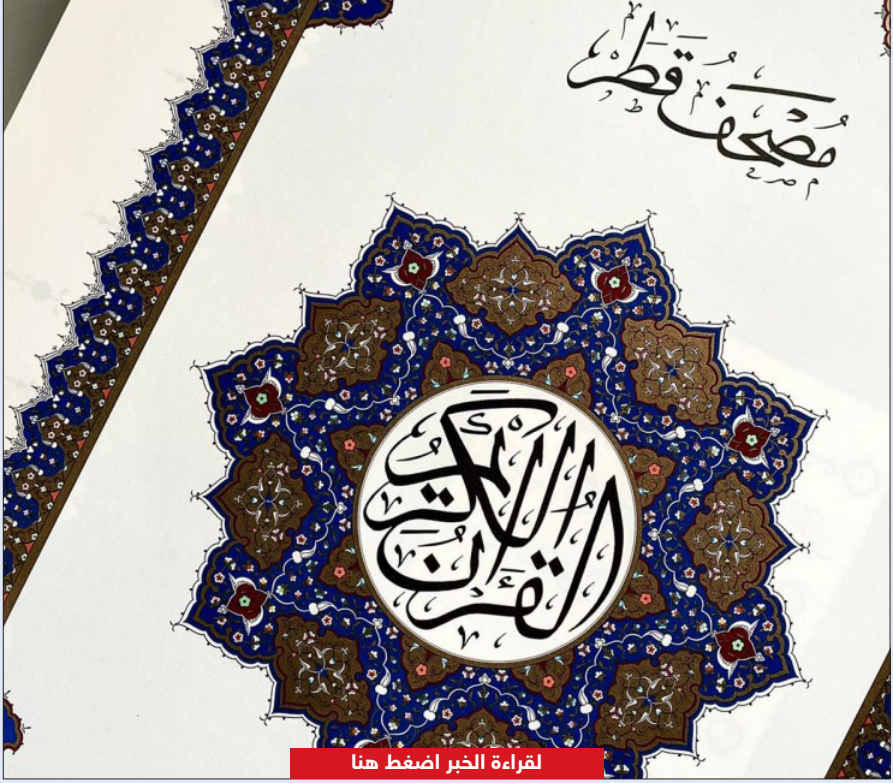 مُصْحَفُ قَطَر
القرآن الكريم
لقراءة الخبر اضغط هنا